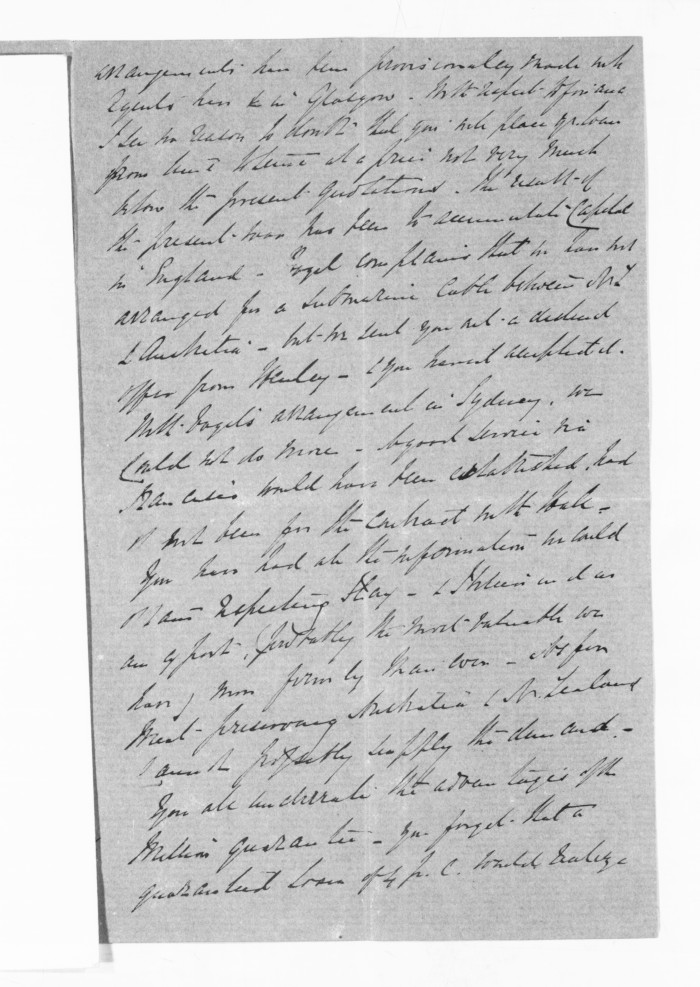 arrangements have been provisionally made with
Agents here & in Glasgow. With respect to finance
I see no reason to doubt that you will place yr. loan
from time to time at a price not very much
below the present quotations. The result of
the present war has been to accumulate Capital
in England - Vogel complains that we have not
arranged for a submarine Cable between N.Z.
& Australia - but we sent you out a distinct
offer from Henley - & you havent accepted it.
With Vogel's arrangement in Sydney, we
Could not do more - A good service via
Francisco would have been established, had
it not been for the Contract with Hall -
You have had all the information we could
obtain respecting Flax - & I believe in it as
an export, (probably the most valuable we
have) more firmly than ever - As for
Meat preserving Australia & N. Zealand
cannot possibly supply the demand. -
You all underrate the advantages of the
Million guarantee - you forget that a
guaranteed Loan of 4 p. C. would realize